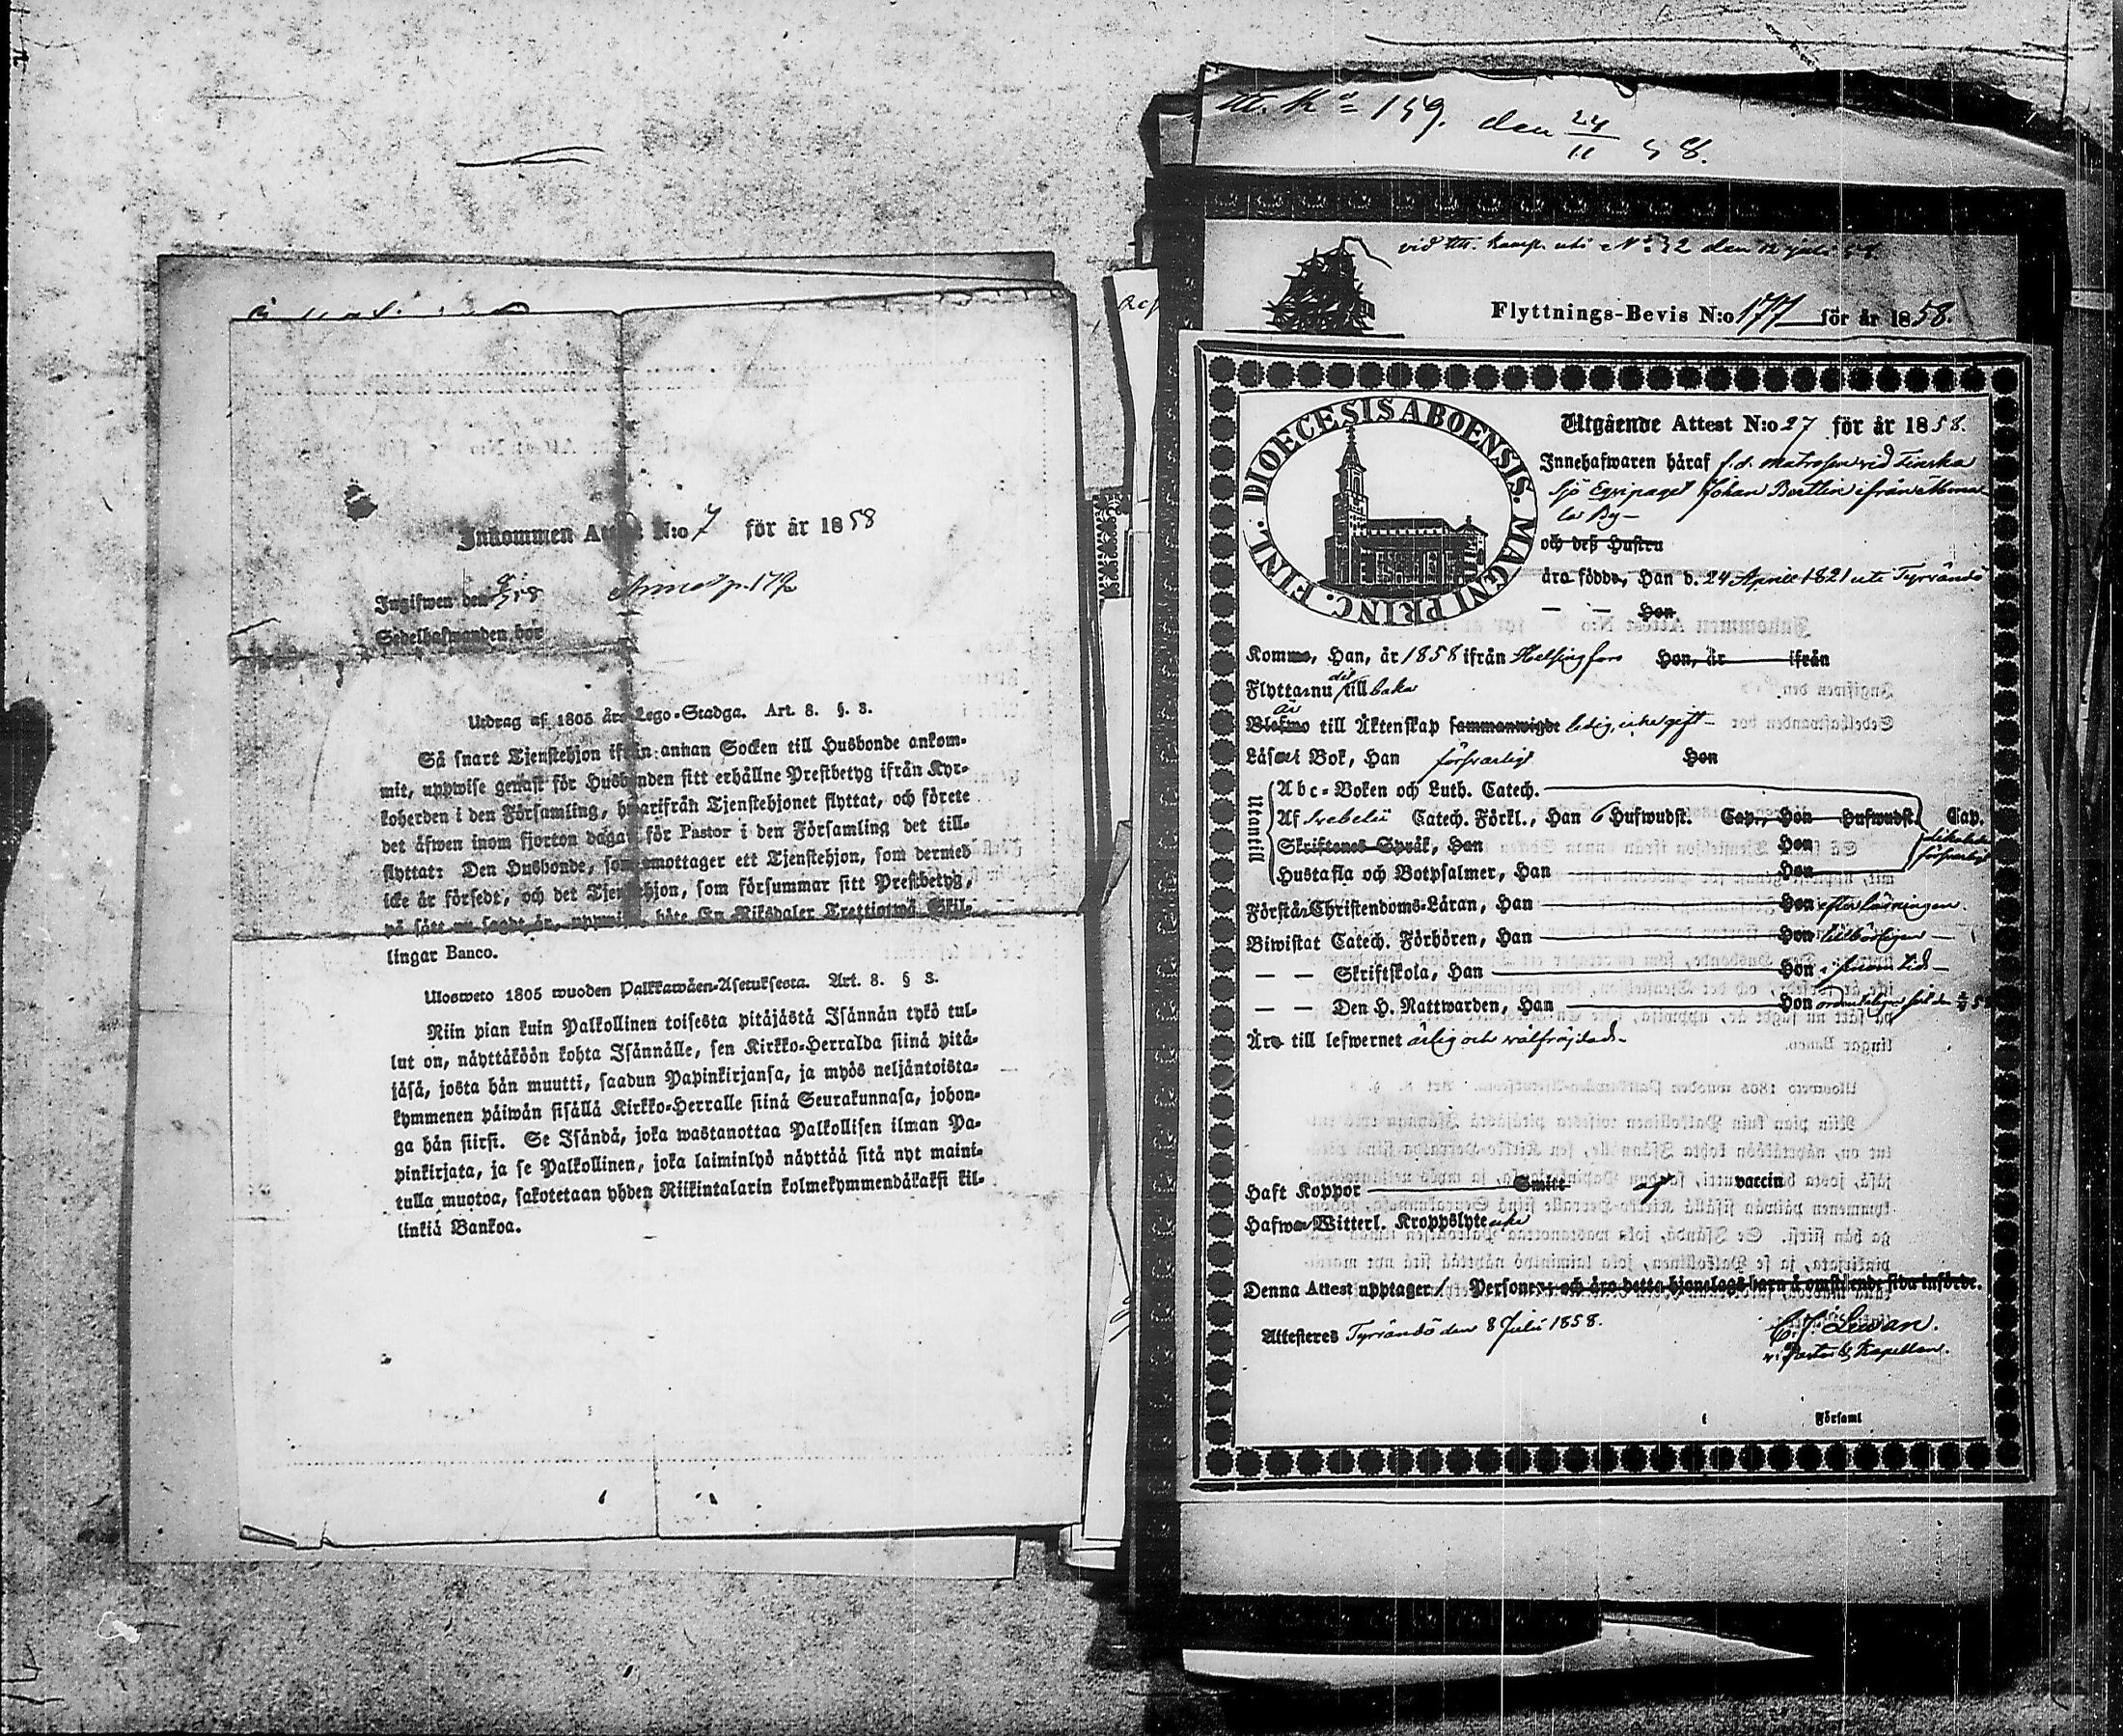 Inkommen Attest N:o 7 för år 1858
Ingifwen den
Sedelhafwanden bor
Utdrag af 1805 års Lego-Stadga. Art. 8. §. 3.
Så snart Tjenstehjon ifrån annan Socken till Husbonde ankom-
mit, uppwise genast för Husbonden sitt erhållne Prestbetyg ifrån Kyr-
koherden i den Församling, hwarifrån Tjenstehjonet flyttat, och förete
det äfwen inom fjorton dagar för Pastor i den Församling det till-
flyttat: Den Husbonde, som emottager ett Tjenstehjon, som dermed
icke är försedt, och det Tjenstehjon, som försummar sitt Prestbetyg,
på sätt nu sagdt är, uppwisa, böte En Riksdaler Trettiotwå Skil-
lingar Banco.
Ulosweto 1805 wuoden Palkkawäen-Asetuksesta. Art. 8. § 3.
Niin pian kuin Palkollinen toisesta pitäjästä Isännän tykö tul-
lut on, näyttäköön kohta Isännälle, sen Kirkko-Herralda siinä pitä-
jäsä, josta hän muutti, saadun Papinkirjansa, ja myös neljäntoista-
kymmenen päiwän sisällä Kirkko-Herralle siinä Seurakunnasa, johon-
ga hän siirsi. Se Isändä, joka wastanottaa Palkollisen ilman Pa-
pinkirjata, ja se Palkollinen, joka laiminlyö näyttää sitä nyt maini-
tulla muotoa, sakotetaan yhden Riikintalarin kolmekymmendäkaksi kil-
linkiä Bankoa.
159. den 24/11 58.
Flyttnings-Bevis N:o 177 för år 1858.
DIOECESIS ABOENSIS. MAGNI PRINC. FINL.
Utgående Attest N:o 27 för år 1858.
Innehafwaren häraf f.d. matrosen vid Finska
Sjö Equipaget Johan Bertlin ifrån
By
och deß Hustru
äro födde, Han d. 24 April 1821 uti Tyrvändö
— — Hon
Komne, Han, år 1858 ifrån Helsingfors Hon, år ifrån
Flytta nu dit till baka
är
Blefwo till Äktenskap sammanwigde ledig, icke gift
Läsa i Bok, Han försvarligt Hon
Utantill
Abc-Boken och Luth. Catech.
Af Svebelii Catech. Förkl., Han 6 Hufwudst. Cap., Hon Hufwudst. Cap.
Skriftenes Språk, Han Hon
Hustafla och Botpsalmer, Han Hon
försvarligt
Förstår Christendoms-Läran, Han Hon efter läsningen.
Biwistat Catech. Förhören, Han Hon
— — Skriftskola, Han Hon i sinom tid
— — Den H. Nattwarden, Han Hon
Äro till lefwernet ärlig och välfräjdad
Haft Koppor Smitt af vaccin
Hafwa Witterl. Kroppslyte icke
Denna Attest upptager 1 Personer, och äro detta hjonelags barn å omstående sida införde.
Attesteres Tyrvändö den 8 Julii 1858.
v. Pastor & Kapellan.
Församl